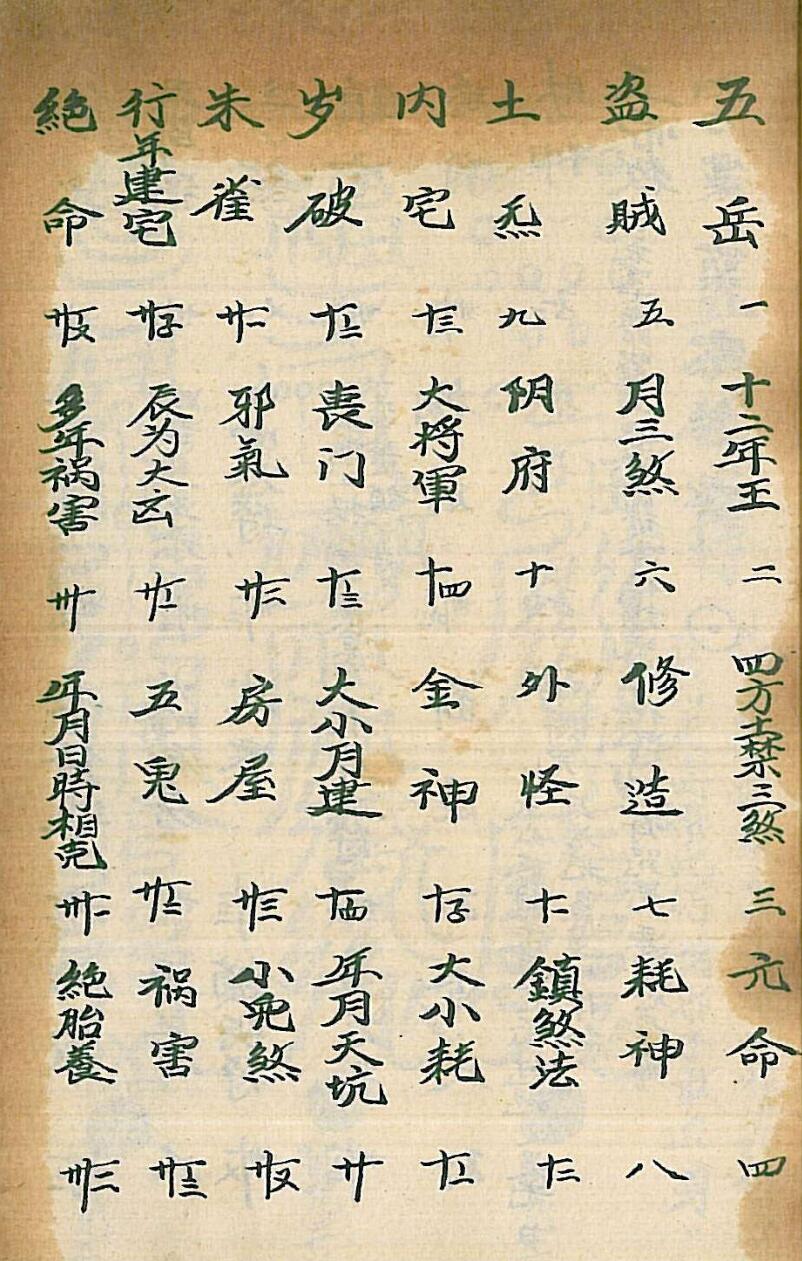 五岳一十二年王二四方土禁三煞三元命四
盗贼五月三煞六修造七耗神八
土炁九阴府十外怪十一鎮煞法十二
内宅十三大将軍十四金神十〥大小耗十〦
岁破十〧喪门十〨大小月建十〩年月天坑廿
朱雀廿一邪氣廿二房屋廿三小児煞廿〤
行年建宅廿〥辰为大凶廿〦五鬼廿〧祸害廿〨
絶命廿〩多年祸害卅年月日時相克卅一絶胎養卅二